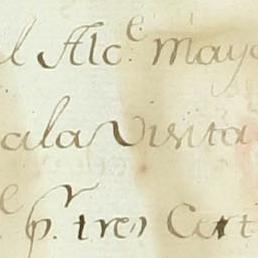 l Alc.e mayo
ala Visita
e p.r tres Cart